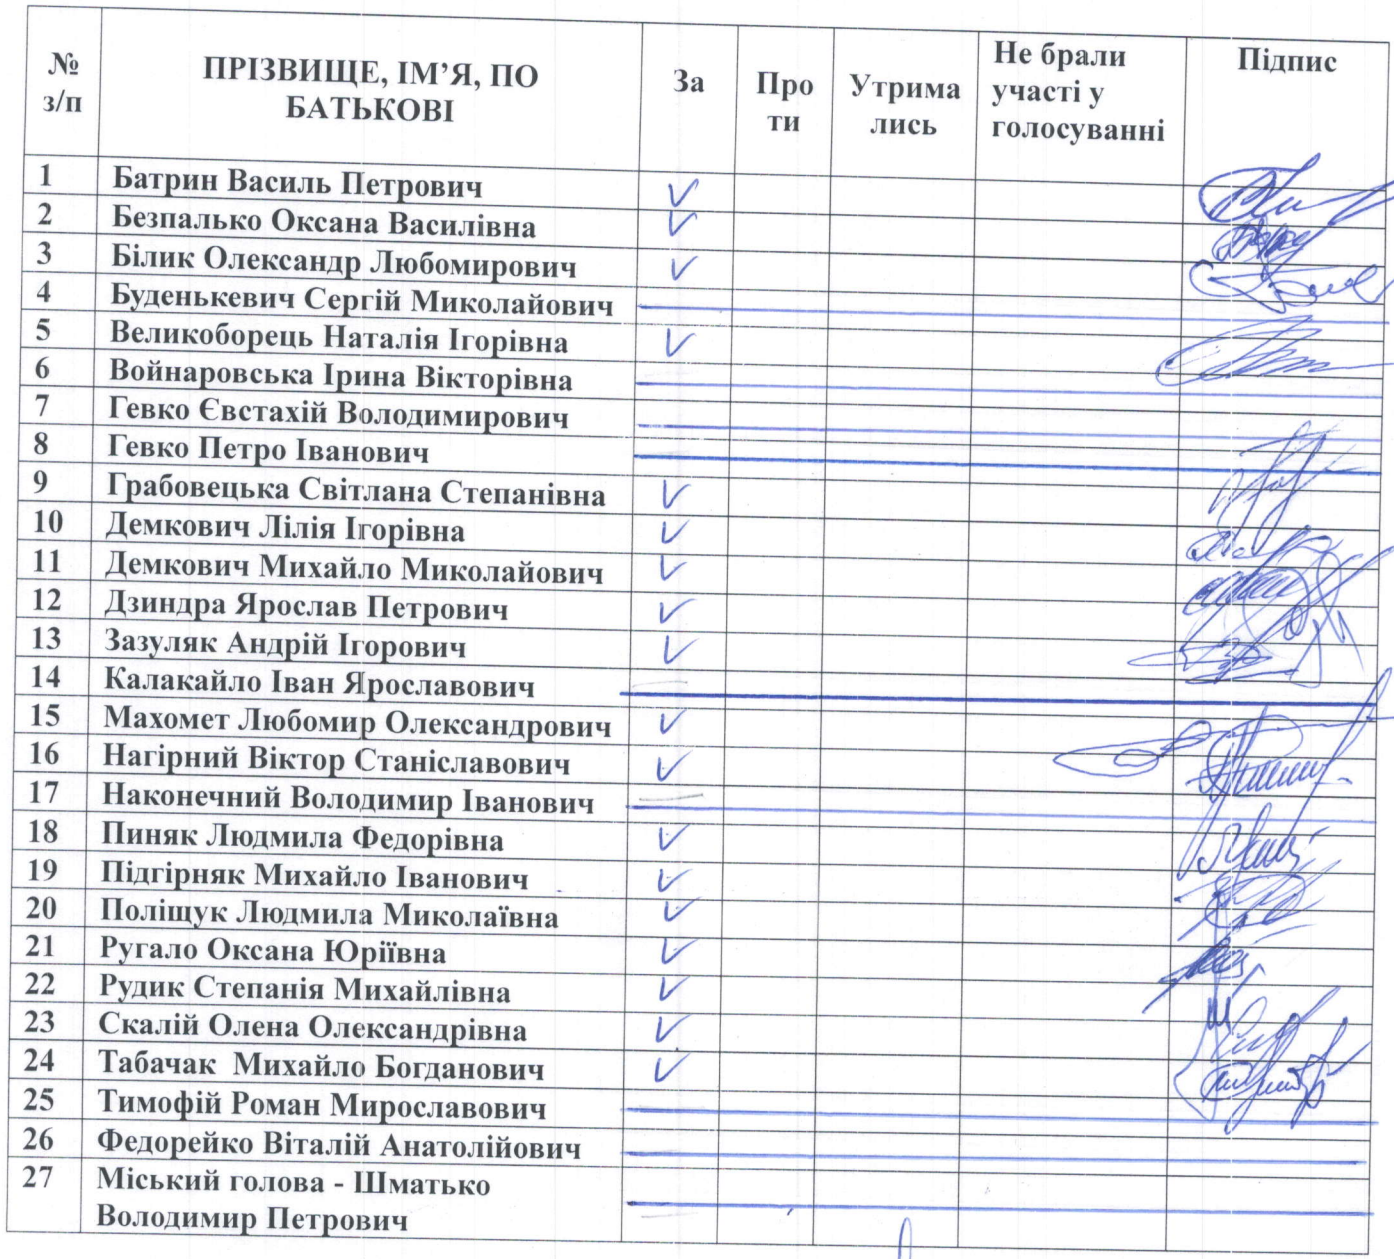 № з/п ПРІЗВИЩЕ, ІМ’Я, ПО БАТЬКОВІ За Про ти Утрима лись Не брали участі у голосуванні Підпис
1 Батрин Василь Петрович ✓
2 Безпалько Оксана Василівна ✓
3 Білик Олександр Любомирович ✓
4 Буденькевич Сергій Миколайович
5 Великоборець Наталія Ігорівна ✓
6 Войнаровська Ірина Вікторівна
7 Гевко Євстахій Володимирович
8 Гевко Петро Іванович
9 Грабовецька Світлана Степанівна ✓
10 Демкович Лілія Ігорівна ✓
11 Демкович Михайло Миколайович ✓
12 Дзиндра Ярослав Петрович ✓
13 Зазуляк Андрій Ігорович ✓
14 Калакайло Іван Ярославович
15 Махомет Любомир Олександрович ✓
16 Нагірний Віктор Станіславович ✓
17 Наконечний Володимир Іванович
18 Пиняк Людмила Федорівна ✓
19 Підгірняк Михайло Іванович ✓
20 Поліщук Людмила Миколаївна ✓
21 Ругало Оксана Юріївна ✓
22 Рудик Степанія Михайлівна ✓
23 Скалій Олена Олександрівна ✓
24 Табачак Михайло Богданович ✓
25 Тимофій Роман Мирославович
26 Федорейко Віталій Анатолійович
27 Міський голова - Шматько
Володимир Петрович